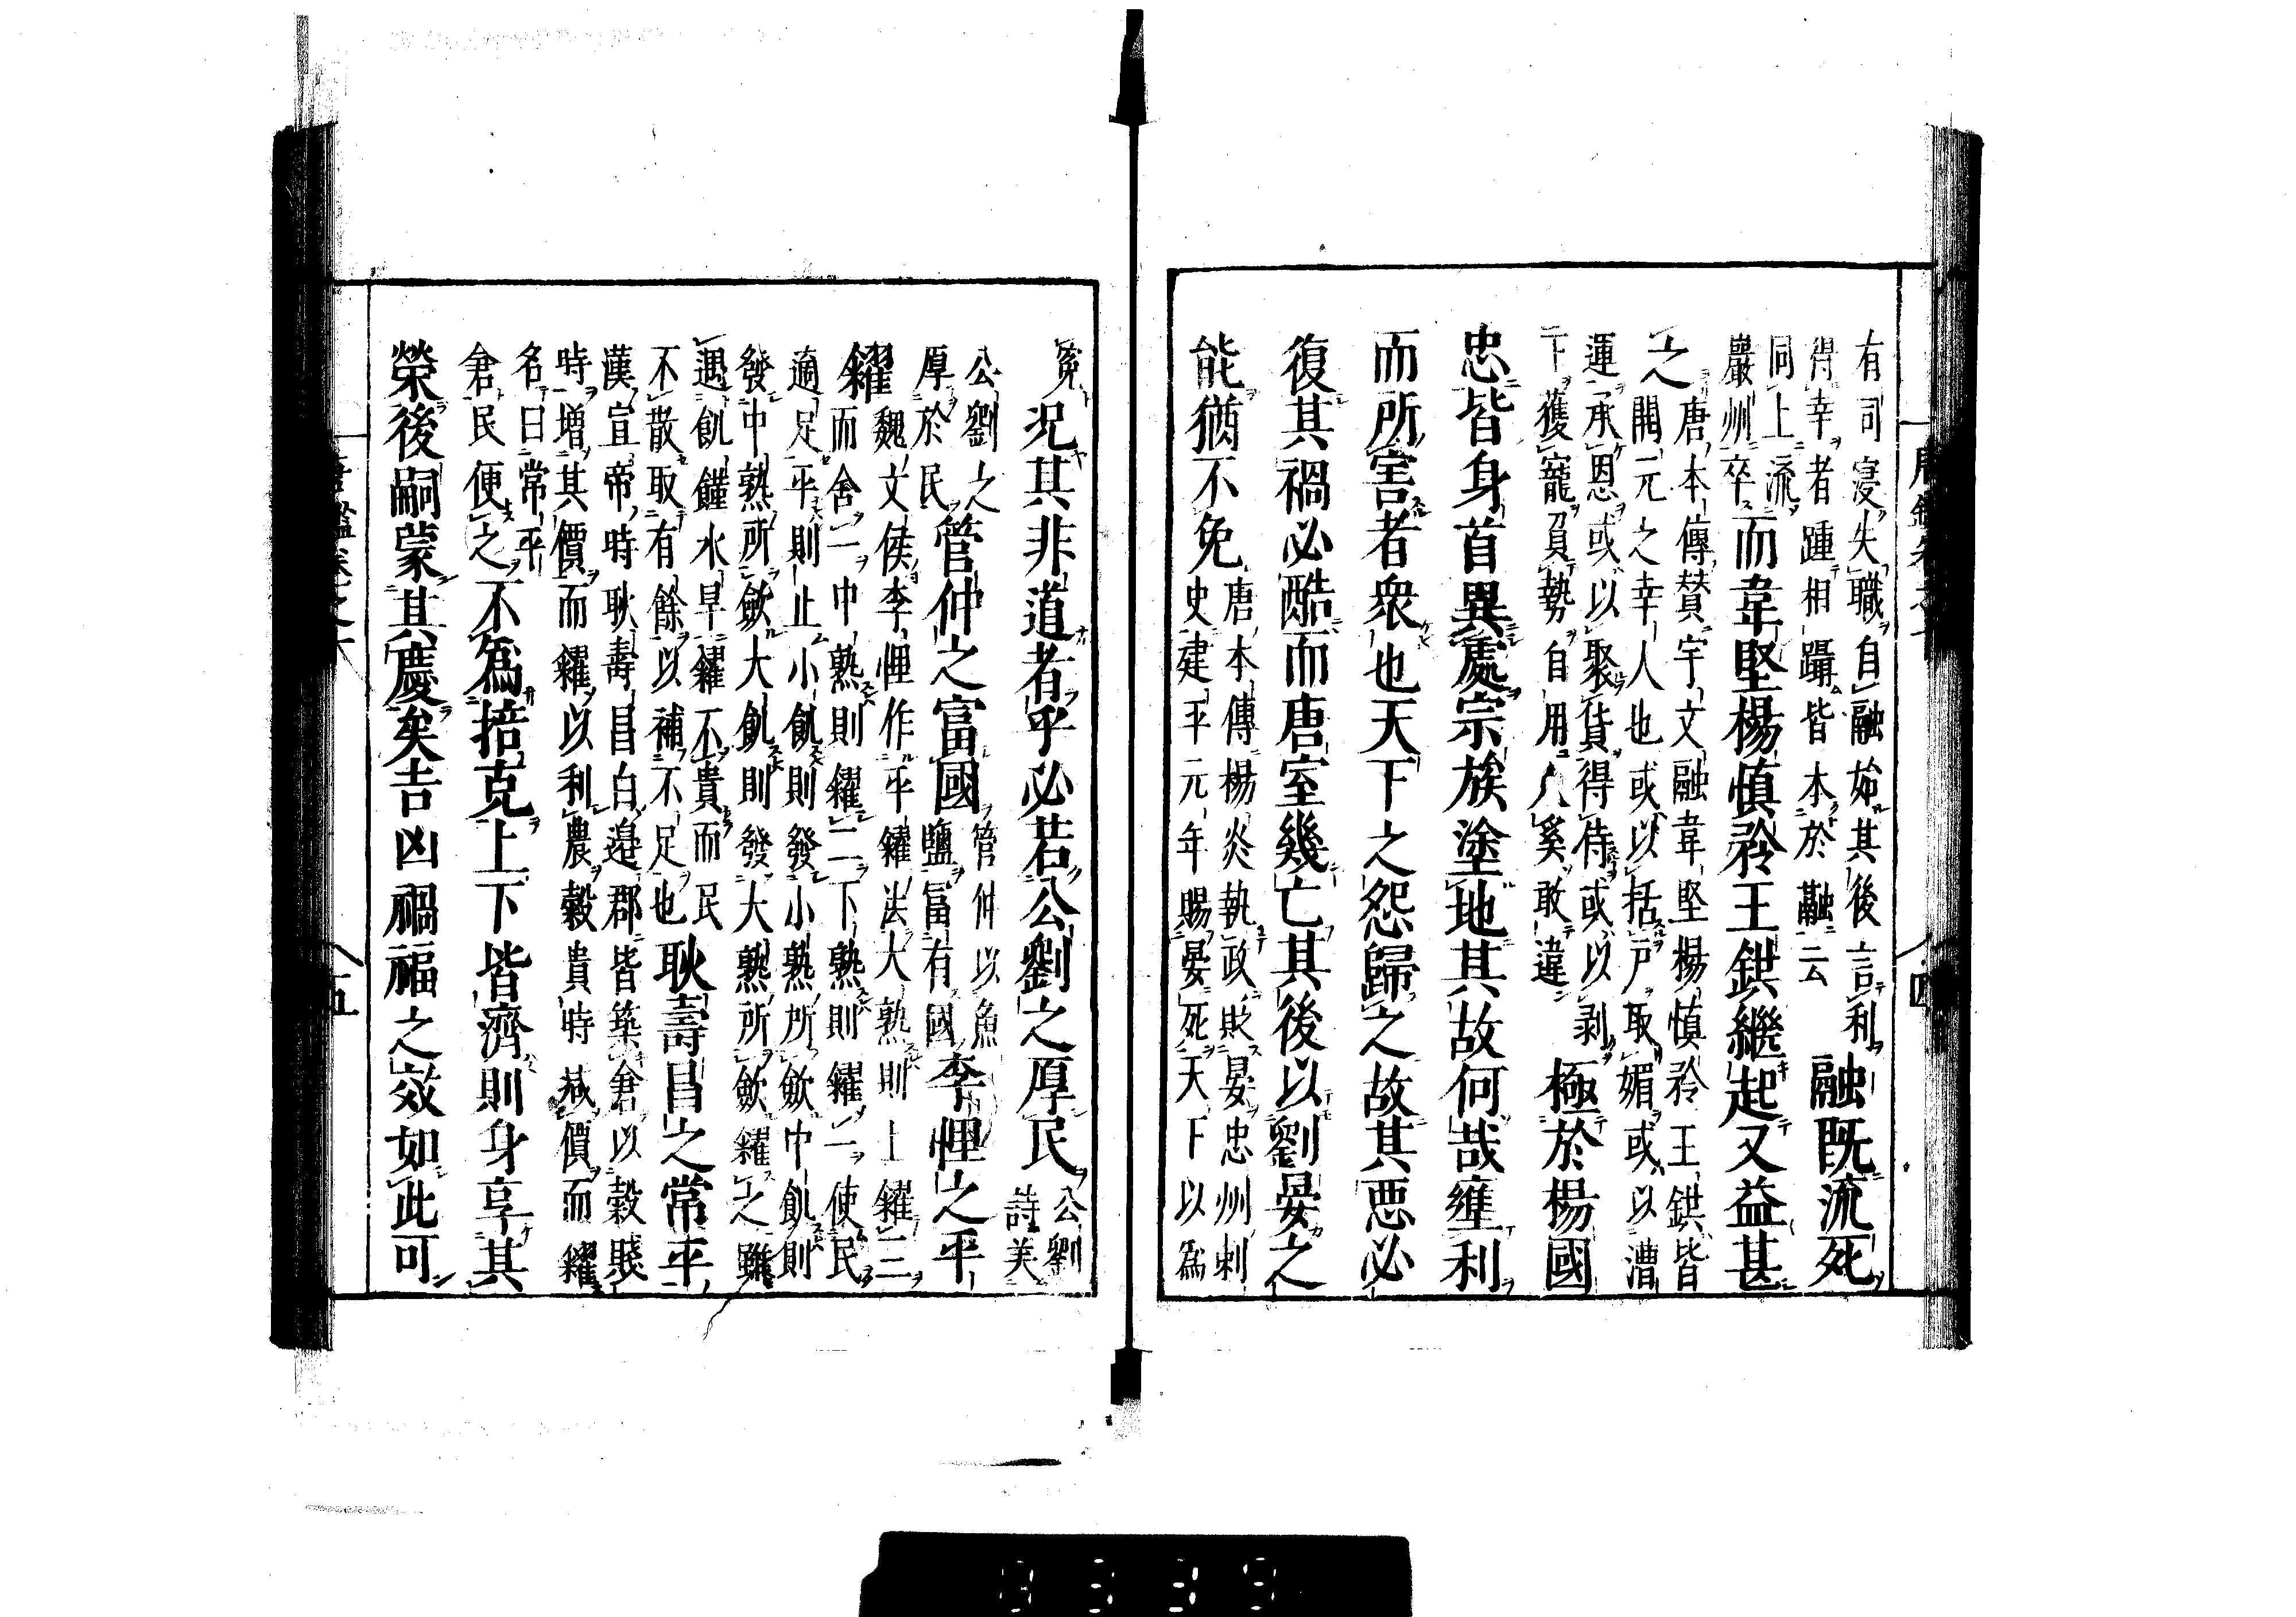 唐鑑卷之六
四
有司寖失職自融始其後言利
得幸者踵相躡皆本於融云
融既流死
同上流
巖州卒
而韋堅楊慎矜王鉷繼起又益甚
之
唐本傳贊宇文融韋堅楊慎矜王鉷皆
開元之幸人也或以括戶取媚或以漕
運承恩或以聚貨得侍或以剥
下獲寵負勢自用人奚敢違
極於楊國
忠皆身首異處宗族塗地其故何哉壅利
而所害者衆也天下之怨歸之故其惡必
復其禍必酷而唐室幾亡其後以劉晏之
能猶不免
唐本傳楊炎執政貶晏忠州刺
史建平元年賜晏死天下以爲
冤
况其非道者乎必若公劉之厚民
公劉
詩美
公劉之
厚於民
管仲之富國
管仲以魚
鹽富有國
李悝之平
糴
魏文侯李悝作平糴法大熟則上糴三
而舍一中熟則糴二下熟則糴一使民
適足平則止小飢則發小熟所歛中飢則
發中熟所歛大飢則發大熟所歛糴之雖
遇飢饉水旱糴不貴而民
不散取有餘以補不足也
耿壽昌之常平
漢宣帝時耿壽昌白邊郡皆築倉以穀賤
時增其價而糴以利農穀貴時减價而糶
名曰常平
倉民便之
不爲掊克上下皆濟則身享其
榮後嗣蒙其慶矣吉凶禍福之效如此可
唐鑑卷之六
五